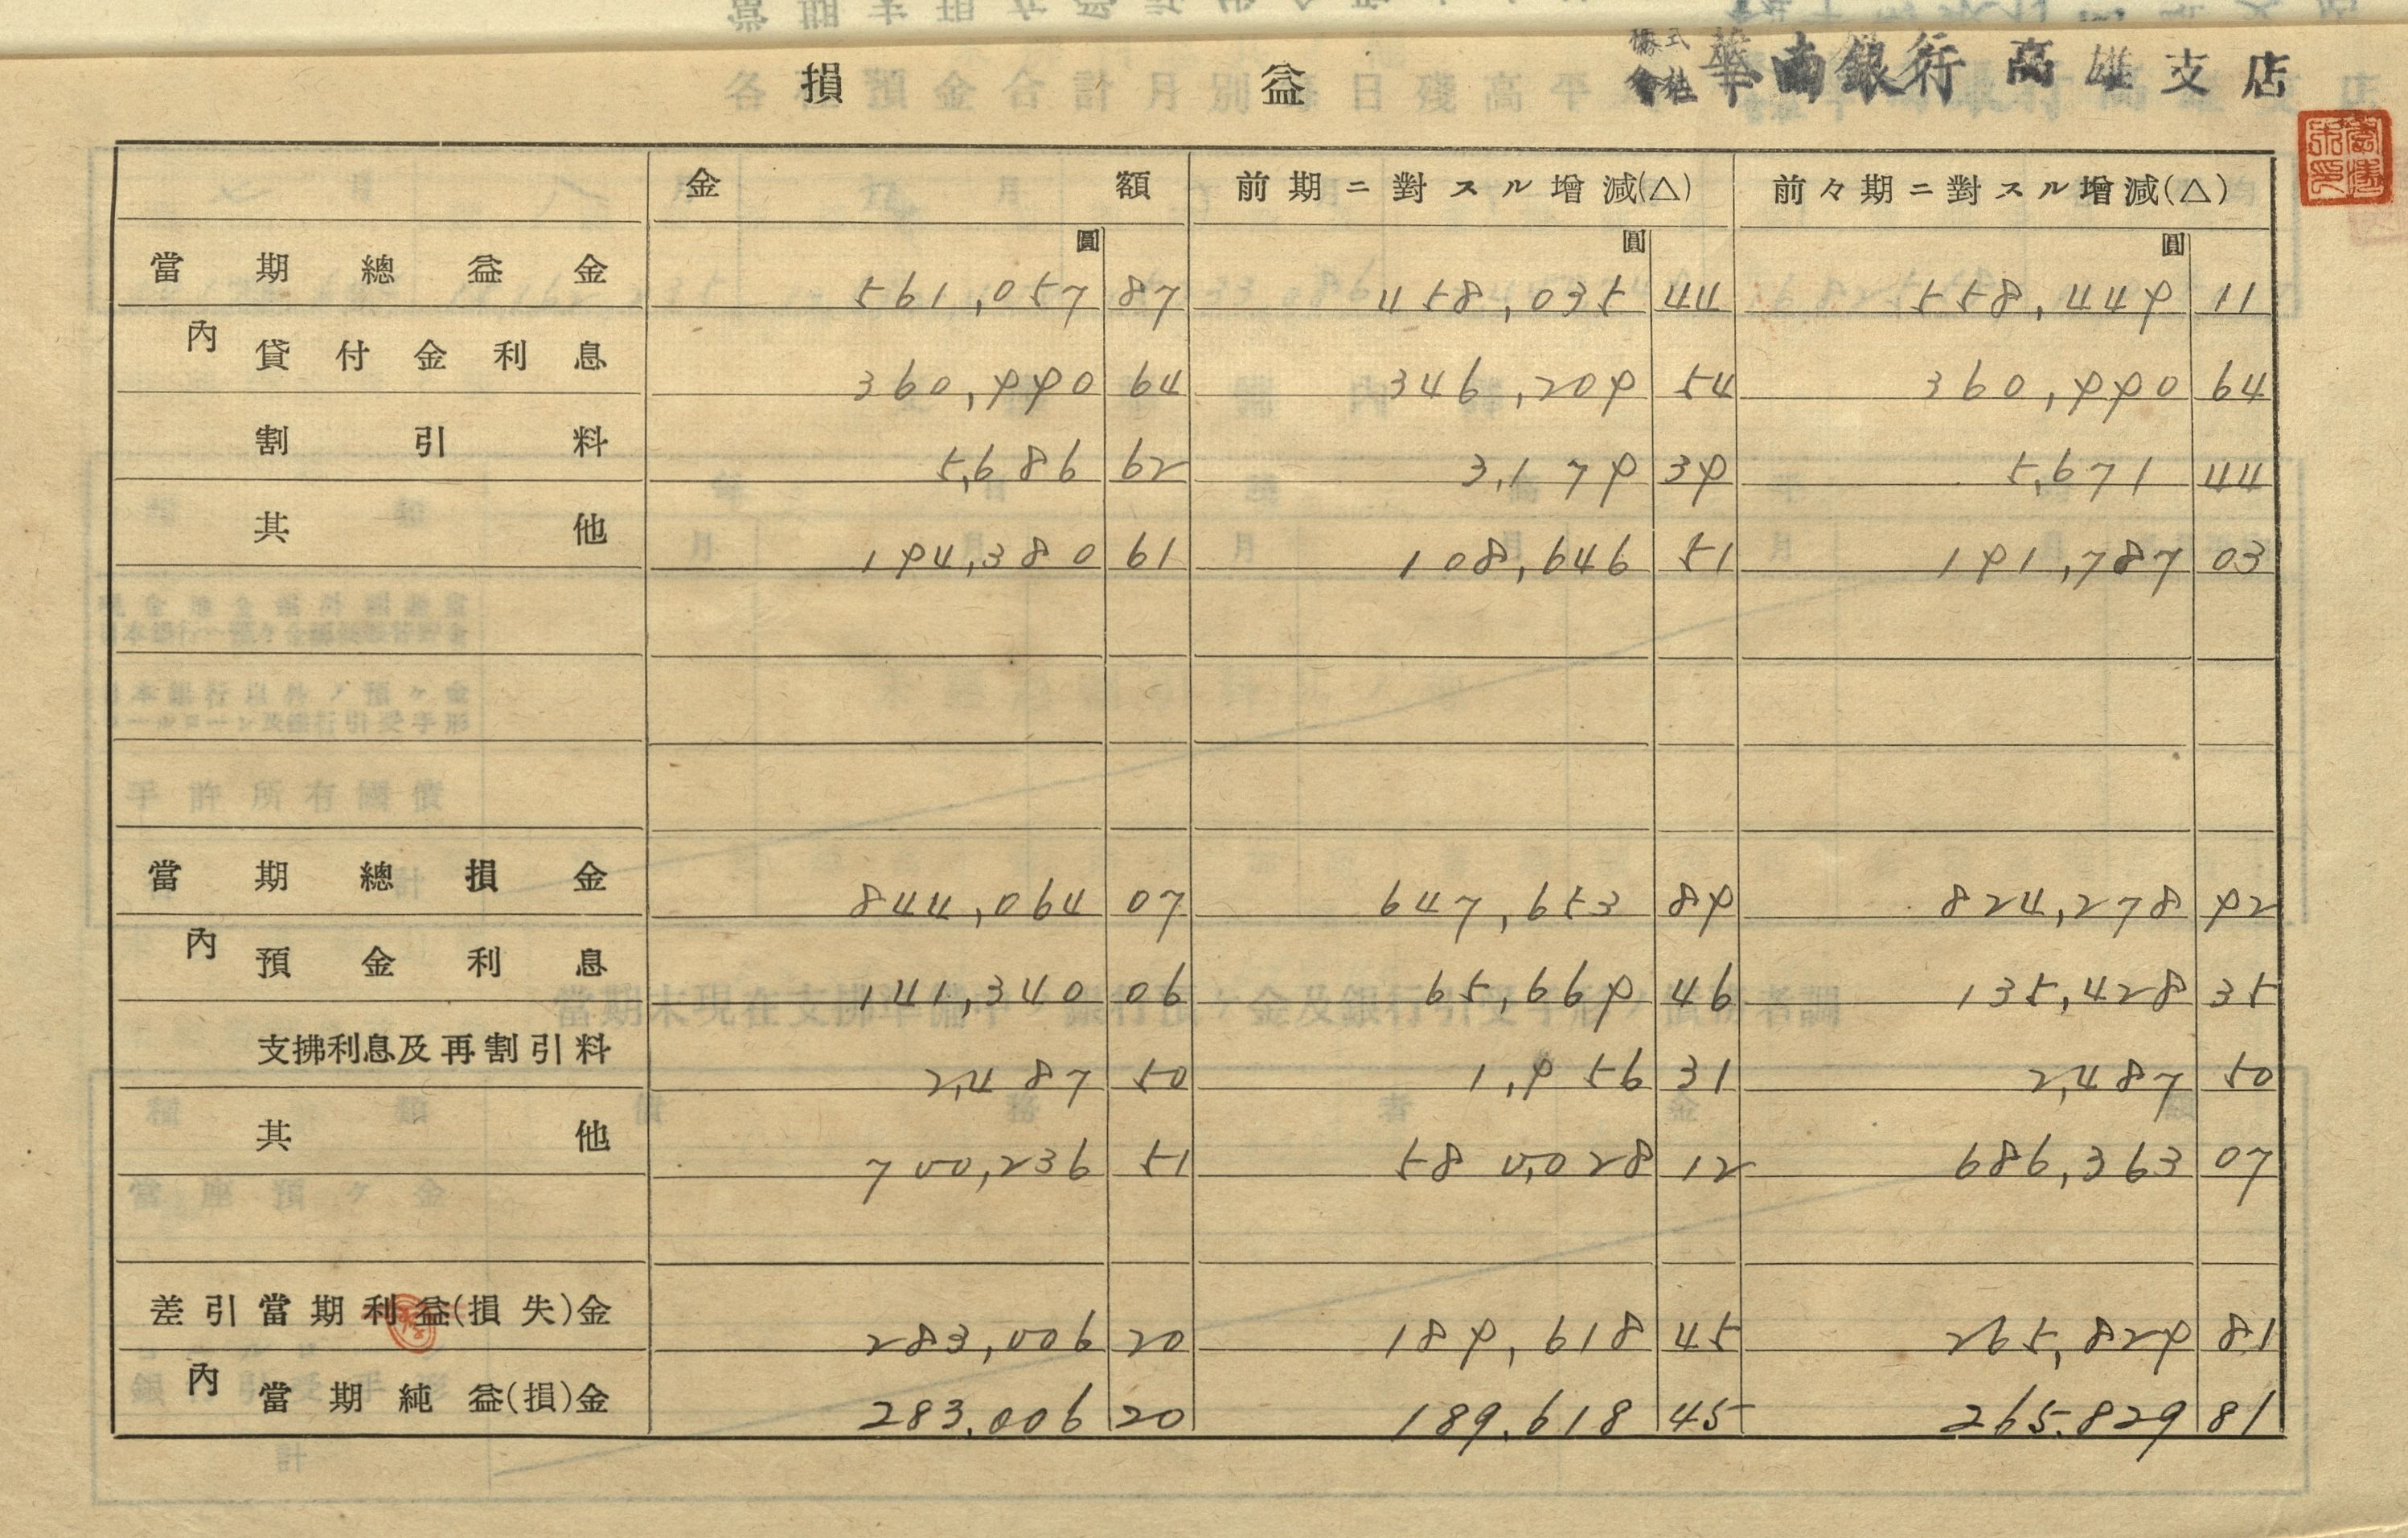 株式會社 華南銀行 高雄支店
損益
金額 前期ニ對スル增減(△) 前々期ニ對スル增減(△)
圓 圓 圓
當期總益金 561,057 87 458,035 44 558,449 11
內 貸付金利息 360,990 64 346,209 54 360,990 64
割引料 5,686 62 3,179 39 5,671 44
其他 194,380 61 108,646 51 191,787 03
當期總損金 844,064 07 647,653 89 824,278 92
內 預金利息 141,340 06 65,669 46 135,428 35
支拂利息及再割引料 2,487 50 1,956 31 2,487 50
其他 700,236 51 580,028 12 686,363 07
差引當期利益(損失)金 283,006 20 189,618 45 265,829 81
內 當期純益(損)金 283.006 20 189.618 45 265.829 81